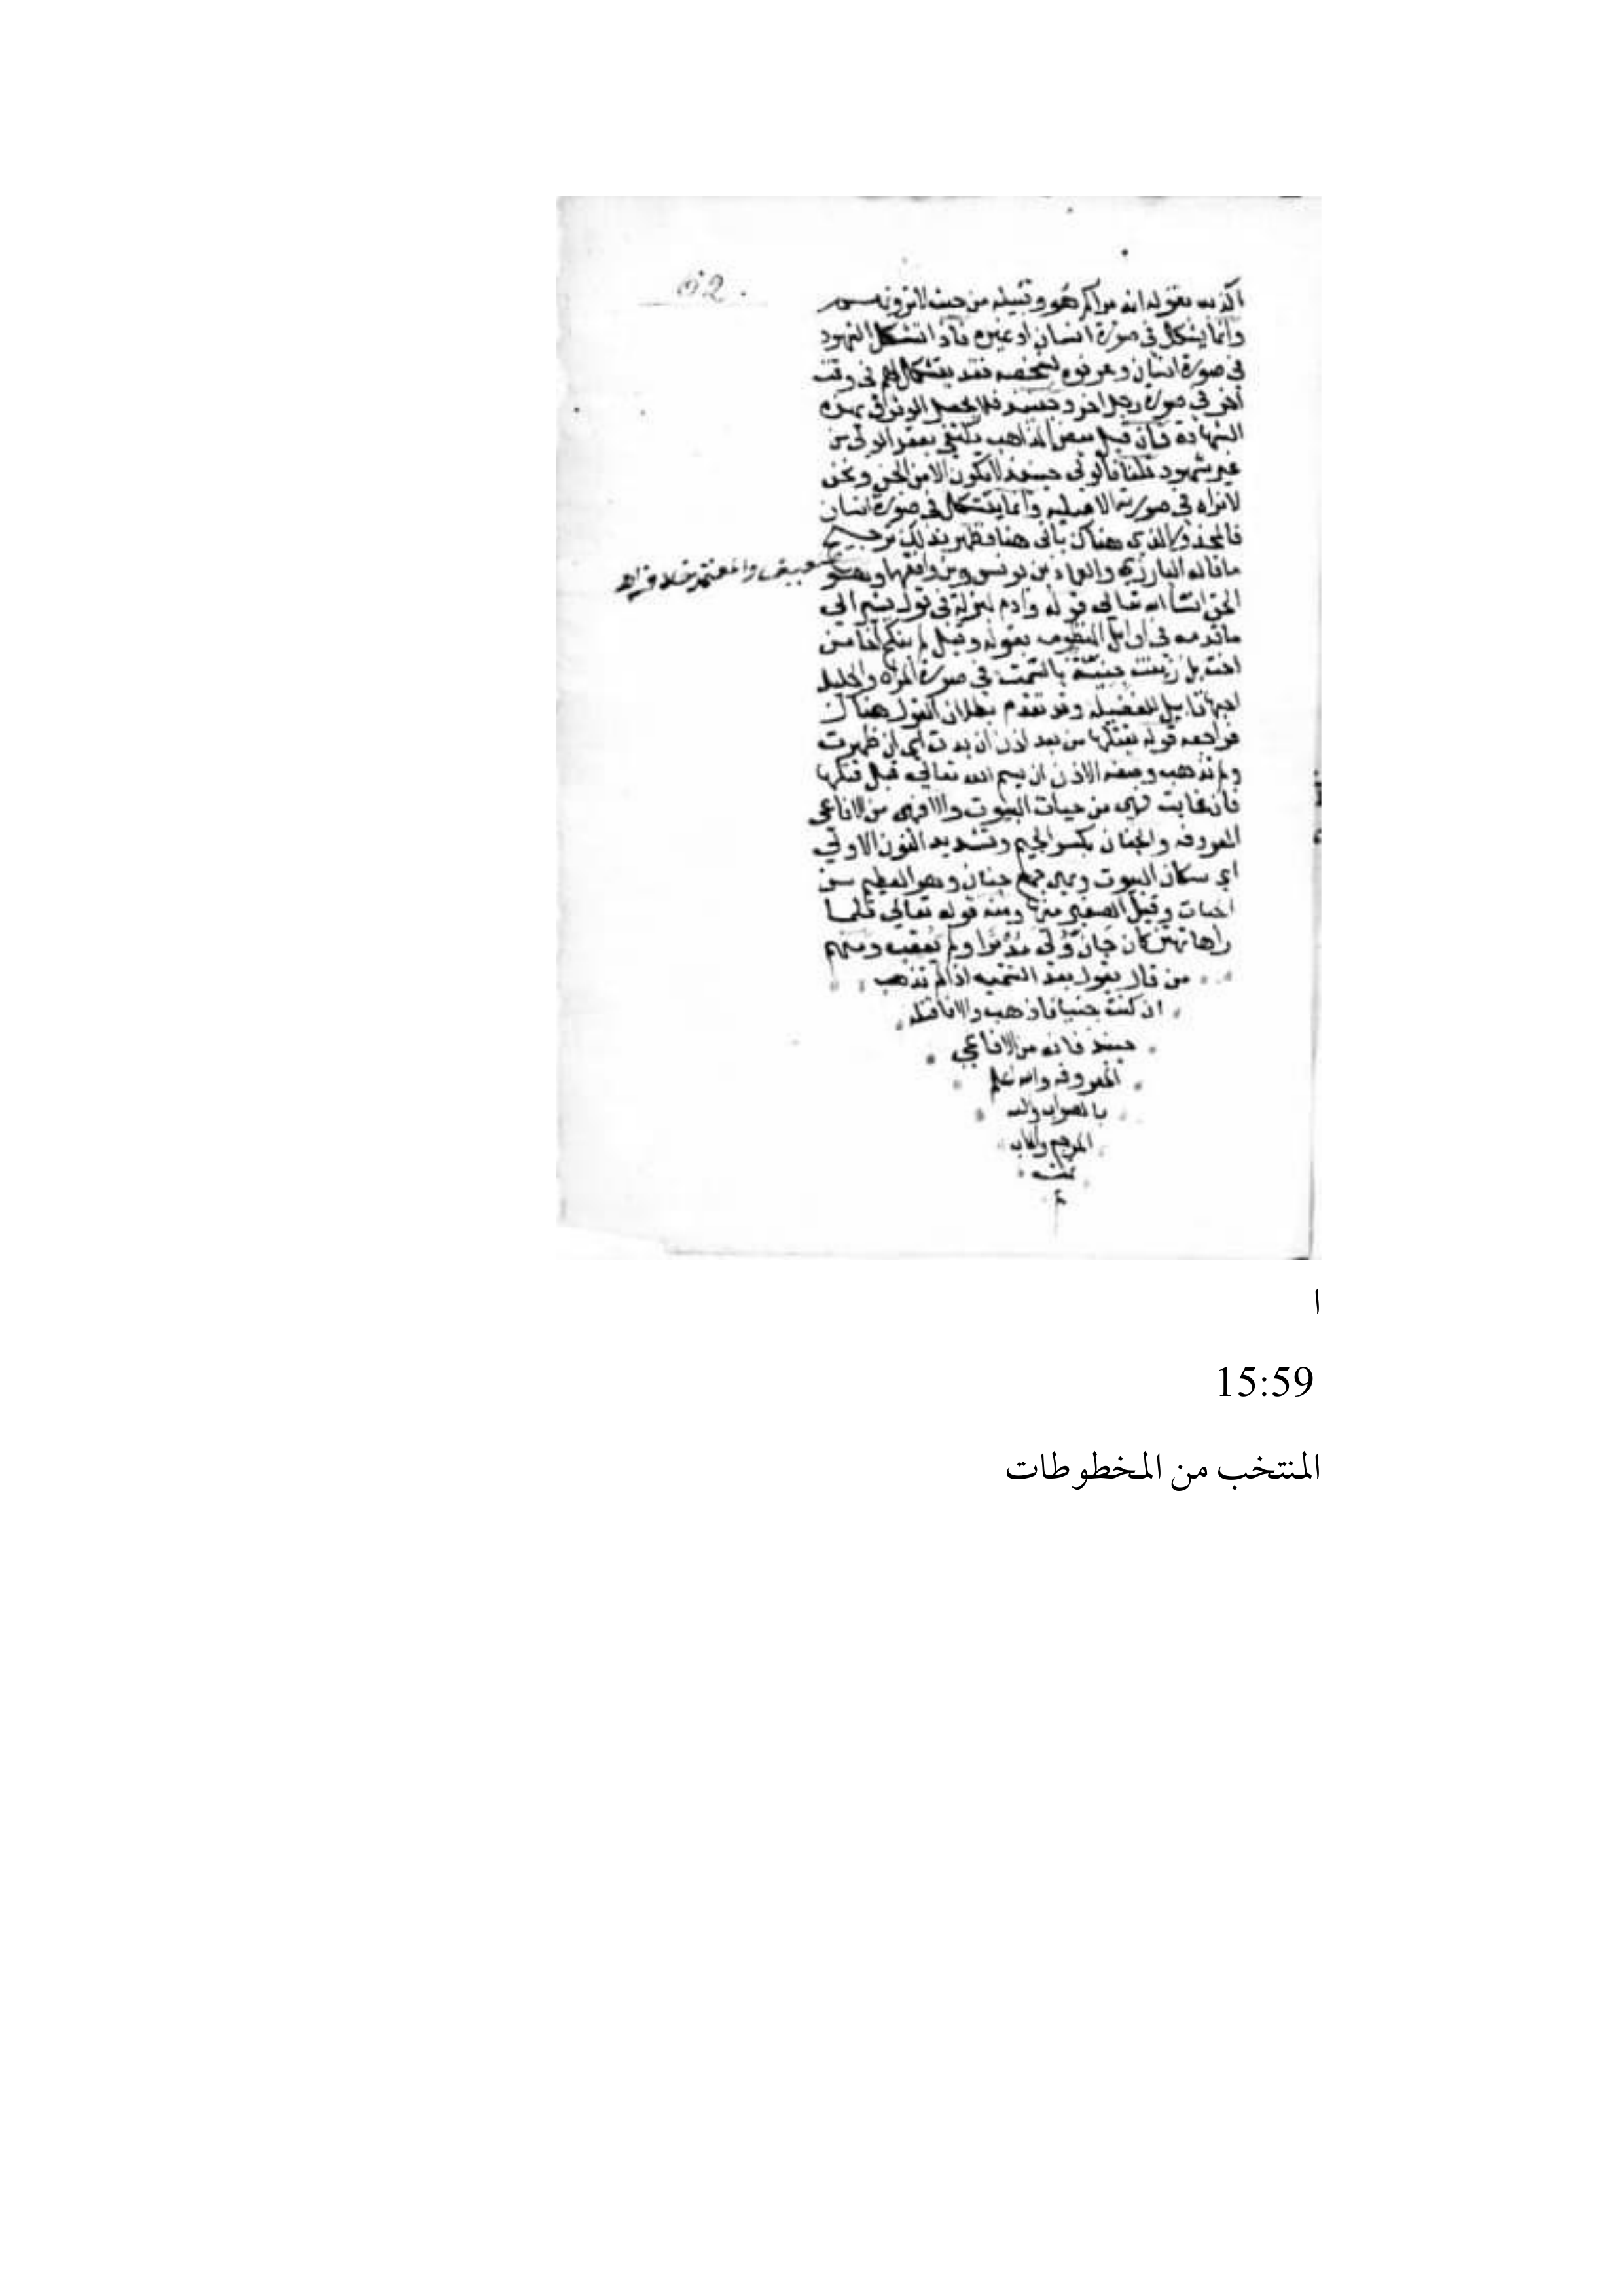 62.
اكد به بقوله انه يراكم هو وقبيله من حيث لا ترونهم
وانما يتشكل في صورة انسان او غيره فاذا تشكل الشهود
في صورة انسان وعرفوه فقد يتشكل لهم في وقت
آخر في صورة رجل اخر وحينئذ فلا يحصل الوثوق بهذه
الشهادة فان قيل بعض المذاهب يكتفي بعقد الولي من
غير شهود قلنا فالولي حينئذ لا يكون الا من الجن ونحن
لا نراه في صورته الاصلية وانما يتشكل في صورة انسان
فالمحذور الذي هناك يأتي هنا فظهر بذلك ترجيح
ما قاله البارزي والعماد بن يونس ومن وافقهما وهو
ضعيف والمعتمد خلافه اهـ
الحق انشا الله تعالى قوله وادم في قول يشير الى
ما قدمه في اوايل المنظومه بقوله وقيل لم ينكح اخا من
اخت بل زينت جنية في صورة المراه والجليل
قابيل للفضيله وقد تقدم بطلان القول هناك
فراجعه قوله بقتلها من بعد اذن ان بدت اي ان ظهرت
ولم تذهب وصفه الاذن ان يسم الله تعالى قبل قتلها
فان غابت فهى من حيات البيوت والا فهى من الافاعي
المعروفه والجنان بكسر الجيم وتشديد النون الاولي
اي سكان البيوت وهي جمع جنان وهو العظيم من
الحيات وقيل الصغير منها ومنه قوله تعالى فلما
راها تهتز كانها جان ولى مدبرا ولم يعقب ومنهم
من قال يقول بعد التسميه اذا لم تذهب
ان كنت جنيا فاذهب والا فاقتله
حينئذ فانه من الافاعي
المعروفه والله اعلم
بالصواب واليه
المرجع والماب
تمت
م
ا
15:59
المنتخب من المخطوطات